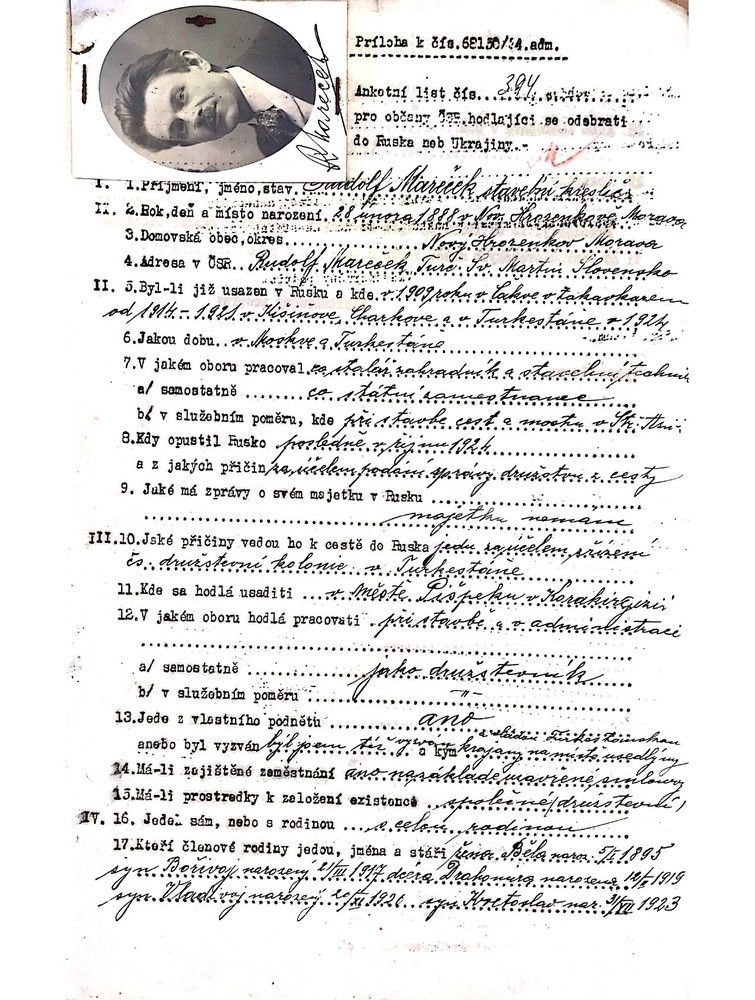 Príloha k čís.68150/24.adm.
R Mareček
Anketní list čís...394
pro občany ČSR hodlající se odebrati
do Ruska neb Ukrajiny.-
I. 1.Příjmení, jméno,stav. Rudolf Mareček stavební kreslič
II. 2.Rok,deň a místo narození. 28 února 1888 v Nov. Hrozenkově Morava
3.Domovská obec,okres........ Nový Hrozenkov Morava
4.Adresa v ČSR.. Rudolf Mareček Turč. Sv. Martin Slovensko
II. 5.Byl-li již usazen v Rusku a kde. v 1909 roku v Zakavkazem
od 1914 - 1921. v Kišiňove, Charkove a v Turkestáne v 1924
6.Jakou dobu.. v Moskve a Turkestáne
7.V jakém oboru pracoval. co stolár zahradník a stavební technik
a/ samostatně ........ co státní zamestnanec
b/ v služebním poměru, kde při stavbe cest a mostu v
8.Kdy opustil Rusko posledně v říjnu 1924
a z jakých příčin za účelem podání zprávy družstvu z cesty
9. Jaké má zprávy o svém majetku v Rusku ..........
majetku nemám
III.10.Jské příčiny vedou ho k cestě do Ruska jedu za účelem zřízení
čs. družstevní kolonie v Turkestáně
11.Kde sa hodlá usaditi ... v městě Pišpeku v Karakirgizii
12.V jakém oboru hodlá pracovati . při stavbe a v administraci
a/ samostatně ........ jako družstevník
b/ v služebním poměru ........ -"-
13.Jede z vlastního podnětu ........ ano
a vládou Turkestanskou
anebo byl vyzván byl jsem též vyzván a kým krajany na místo usedlými
14.Má-li zajištěné zaměstnání ano na základe uzavrené smlouvy
15.Má-li prostredky k založení existence .. společné (družstevní)
IV. 16. Jede sám, nebo s rodinou .... s celou rodinou
17.Kteří členové rodiny jedou, jména a stáří žena Běla naroz. 5/I 1895
syn Bořivoj narozený 21/III 1917 dcera Drahomira narozena 12/I 1919
syn Vladivoj narozený 20/XI 1920 syn Kvetoslav nar. 31/VII 1923